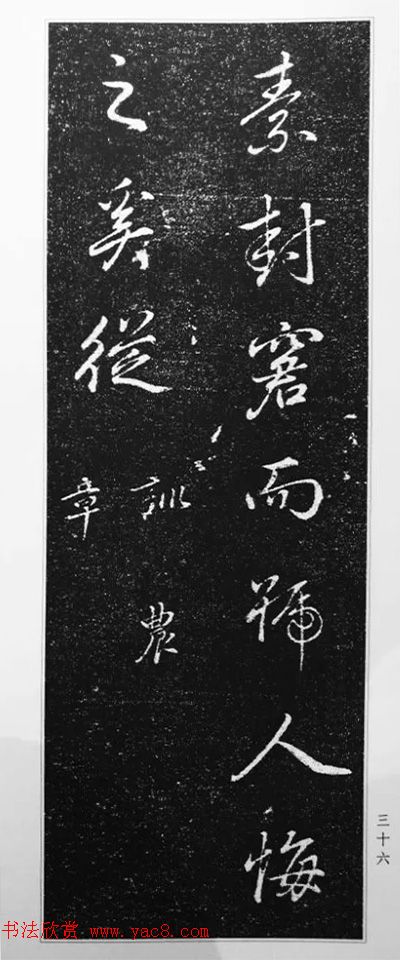 素封窘而號人悔
之奚從
訓農
章
三十六
书法欣赏 www.yac8.com